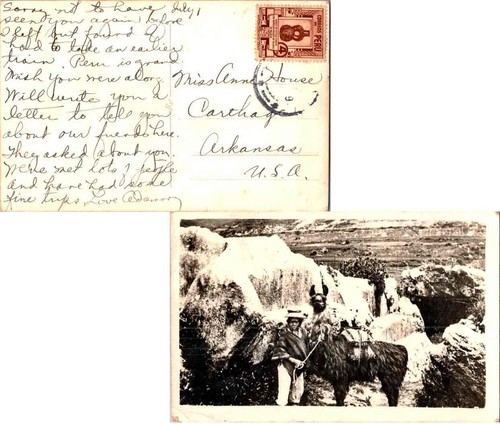 July 1
Sorry not to have
seen you again before
I left but found I
had to take an earlier
train. Peru is grand
Wish you were along
Will write you a
letter to tell you
about our friends here.
They asked about you.
We've met lots of people
and have had some
fine trips. Love
Miss Anne House
Carthage
Arkansas
U.S.A.
CORREOS
PERU